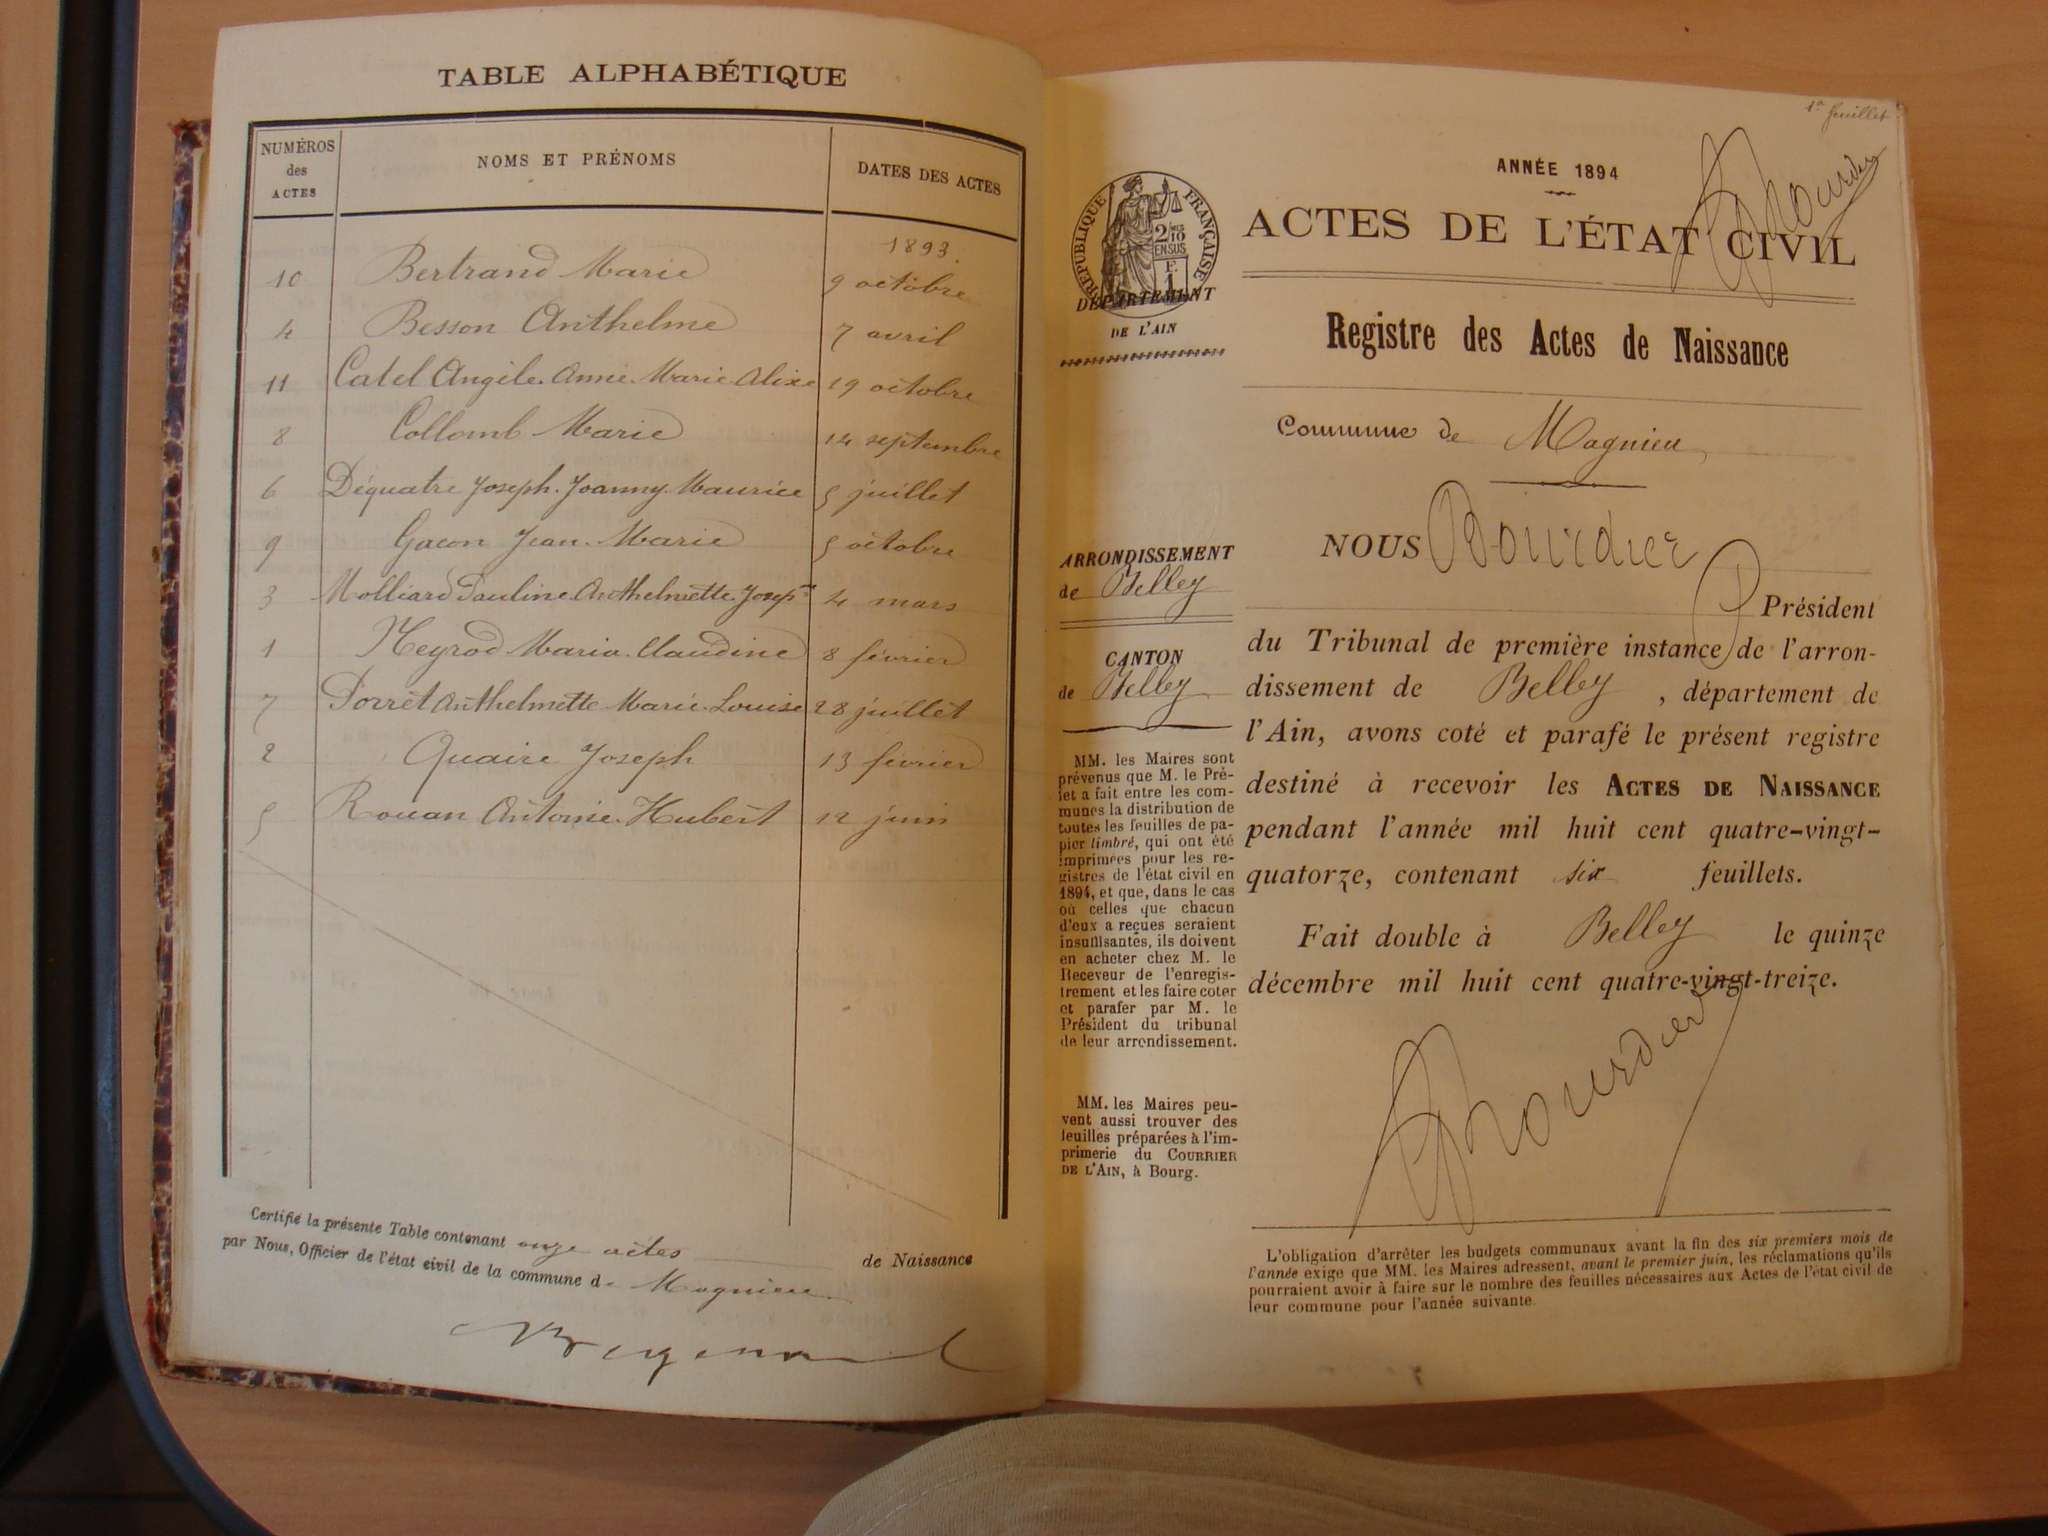 TABLE ALPHABÉTIQUE
NUMÉROS des ACTES
NOMS ET PRÉNOMS
DATES DES ACTES
1893.
10 Bertrand Marie 9 octobre
4 Besson Anthelme 7 avril
11 Catel Angèle. Anne. Marie. Alixe 19 octobre
8 Collomb Marie 14 septembre
6 Déquatre Joseph. Joanny. Maurice 5 juillet
9 Gacon Jean. Marie 5 octobre
3 Molliard Pauline. Anthelmette. Josep 4 mars
1 Neyrod Maria. Claudine 8 février
7 Porret Anthelmette. Marie. Louise 28 juillet
2 Quaire Joseph 13 février
5 Rouan Antoine. Hubert 12 juin
Certifié la présente Table contenant onze actes de Naissance
par Nous, Officier de l'état civil de la commune d. Magnieu.
1er feuillet
ANNÉE 1894
Bourdier
RÉPUBLIQUE FRANÇAISE
2/10 EN SUS
F. 1
DÉPARTEMENT
DE L'AIN
ACTES DE L'ÉTAT CIVIL
Registre des Actes de Naissance
Commune de Magnieu
ARRONDISSEMENT
de Belley
CANTON
de Belley
MM. les Maires sont
prévenus que M. le Pré-
fet a fait entre les com-
munes la distribution de
toutes les feuilles de pa-
pier timbré, qui ont été
imprimées pour les re-
gistres de l'état civil en
1894, et que, dans le cas
où celles que chacun
d'eux a reçues seraient
insuffisantes, ils doivent
en acheter chez M. le
Receveur de l'enregis-
trement et les faire coter
et parafer par M. le
Président du tribunal
de leur arrondissement.
MM. les Maires peu-
vent aussi trouver des
feuilles préparées à l'im-
primerie du COURRIER
DE L'AIN, à Bourg.
NOUS Bourdier
Président
du Tribunal de première instance de l'arron-
dissement de Belley, département de
l'Ain, avons coté et parafé le présent registre
destiné à recevoir les ACTES DE NAISSANCE
pendant l'année mil huit cent quatre-vingt-
quatorze, contenant six feuillets.
Fait double à Belley le quinze
décembre mil huit cent quatre-vingt-treize.
Bourdier
L'obligation d'arrêter les budgets communaux avant la fin des six premiers mois de
l'année exige que MM. les Maires adressent, avant le premier juin, les réclamations qu'ils
pourraient avoir à faire sur le nombre des feuilles nécessaires aux Actes de l'état civil de
leur commune pour l'année suivante.